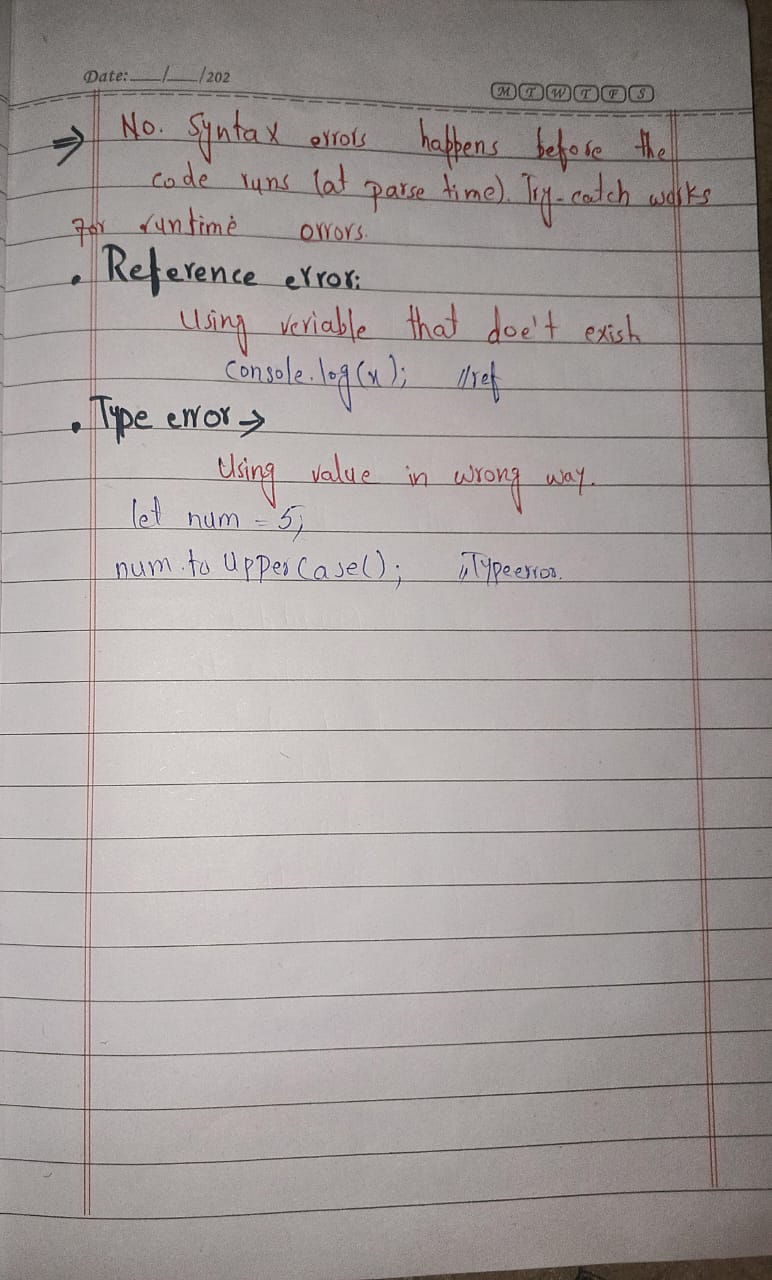 Date: __/__/202
M T W T F S
⇒ No. Syntax errors happens before the
code runs (at parse time). Try-catch works
For runtime errors.
• Reference error:
Using veriable that doe't exish
console.log(x); //ref
• Type error →
Using value in wrong way.
let num = 5;
num.to UpperCase(); //Typeerror.